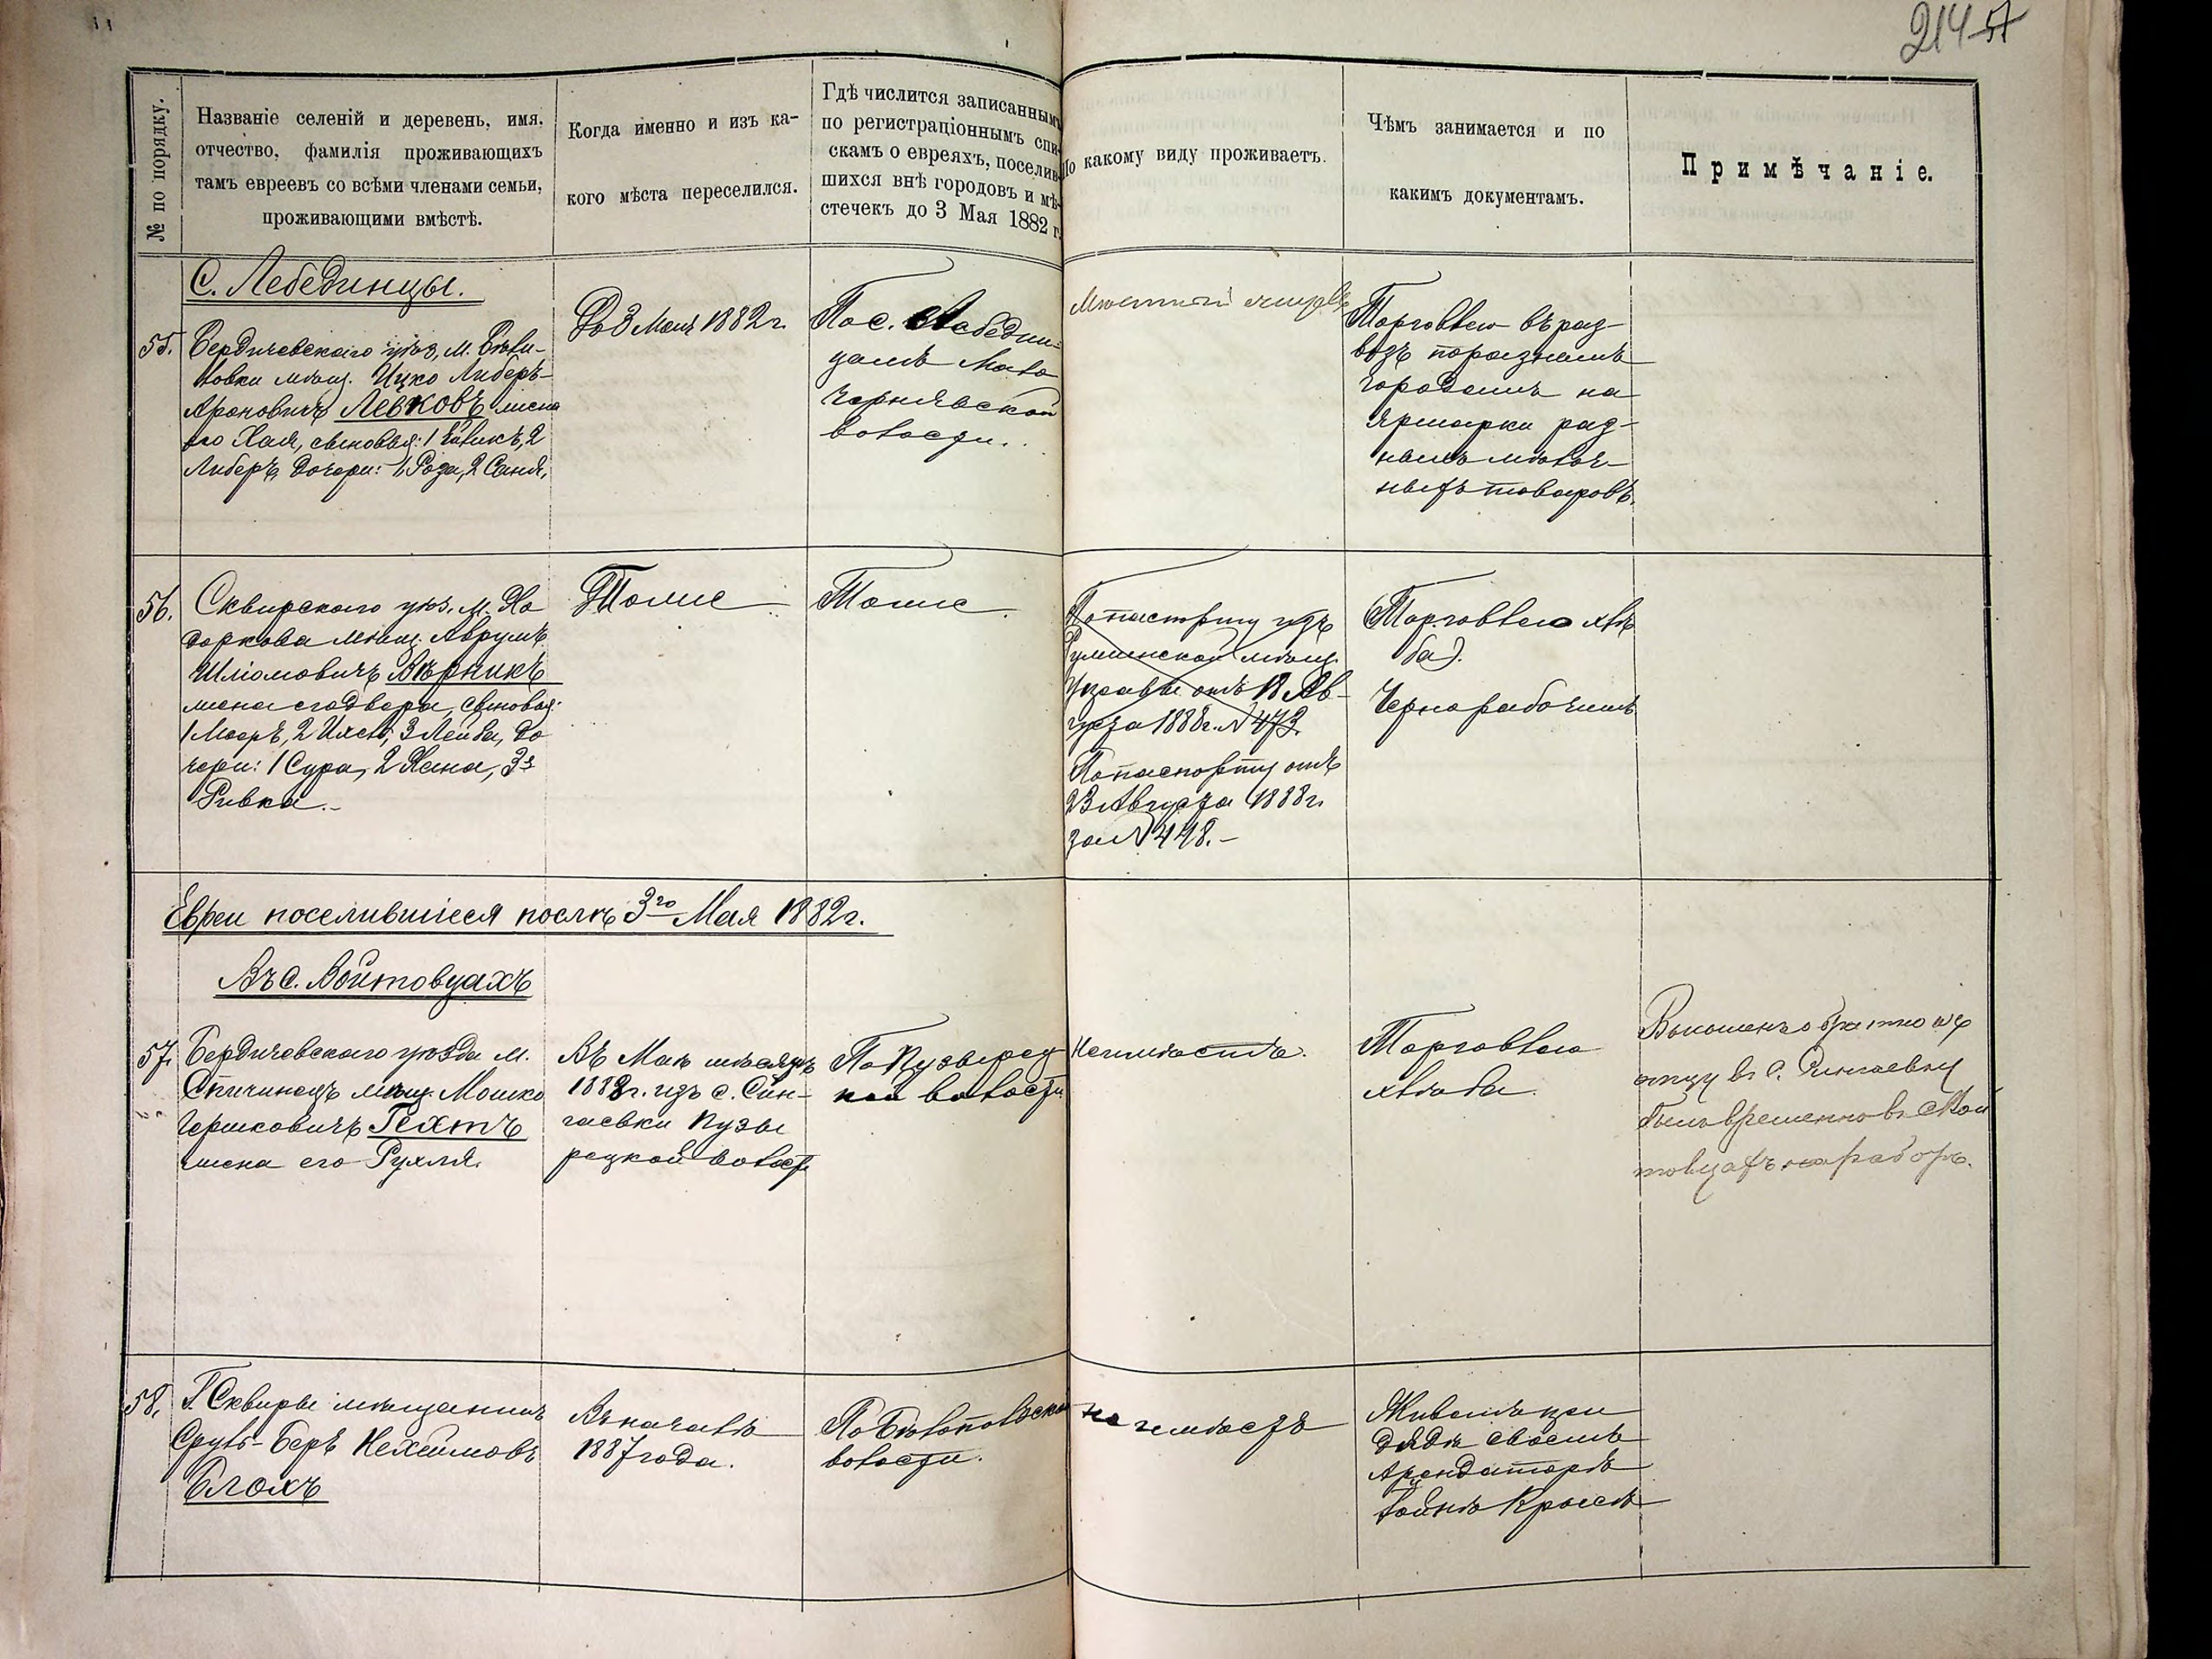 214 57
№ по порядку.
Названіе селеній и деревень, имя,
отчество, фамилія проживающихъ
тамъ евреевъ со всѣми членами семьи,
проживающими вмѣстѣ.
Когда именно и изъ ка-
кого мѣста переселился.
Гдѣ числится записаннымъ
по регистраціоннымъ спи-
скамъ о евреяхъ, поселив-
шихся внѣ городовъ и мѣ-
стечекъ до 3 Мая 1882 г.
По какому виду проживаетъ.
Чѣмъ занимается и по
какимъ документамъ.
Примѣчаніе.
С. Лебединцы.
55.
Бердичевскаго уѣз, м. Бѣли-
ловки мѣщ. Ицко Либеръ-
Ароновичъ Левковъ жена
его Хая, сыновья: 1 2
Либеръ, дочери: 1 Роза, 2 Сеня,
До 3 Мая 1882 г.
По с. Лебедин-
цамъ Мало
Чернявской
волости.
Мѣстный
Торговлею въ раз-
возъ по разнымъ
городамъ на
ярмарки раз-
ныхъ мѣлоч-
ныхъ товаровъ.
56.
Сквирскаго уѣз. м. Хо
доркова мѣщ. Аврумъ
Шліомовичъ Вѣрникъ
жена его Двера, сыновья:
1 Мееръ, 2 3 Лейба, до
чери: 1 Сура, 2 Хана, 3я
Ривка.-
Тоже
Тоже.
По паспорту изъ
мѣщ.
Управы отъ 18 Ав-
густа 1888 г. N 473.
По паспорту отъ
23 Августа 1888 г.
за N 448.-
(Торговлею хлѣ
ба).
Чернорабочимъ
Евреи поселившіеся послѣ 3го Мая 1882 г.
Въ с. Войтовцахъ
57.
Бердичевскаго уѣзда м.
Спичинецъ мѣщ. Мошко
Гершковичъ Гехтъ
жена его Рухля.
Въ Маѣ мѣсяцѣ
1888 г. изъ с. Син-
гаевки Пузы
рецкой волости
По Пузырец
кой волости
Не имѣетъ.
Торговлею
хлѣба.
обратно къ
отцу въ с. Сингаевку
былъ временно въ с. Вой
товцахъ на работѣ.
58.
Г. Сквиры мѣщанинъ
Сруль-Беръ Нехеимовъ
Блохъ
Въ началѣ
1887 года.
По Бѣлопольской
волости.
Не имѣетъ
Живетъ при
дядѣ своемъ
Арендаторѣ